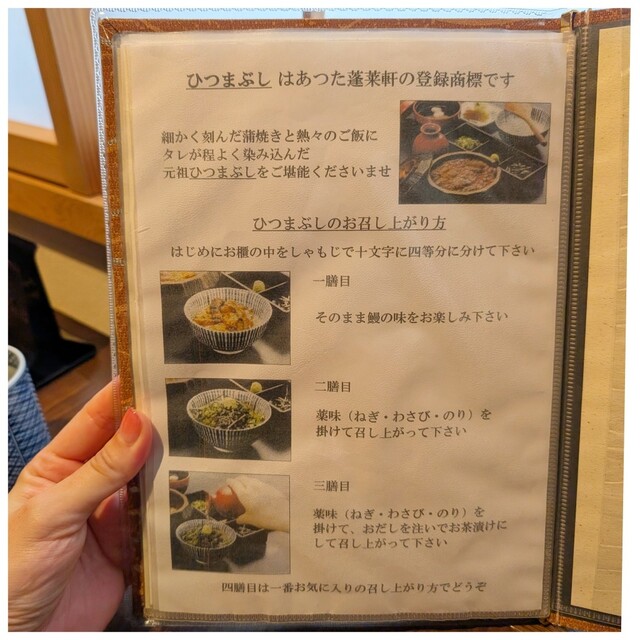 ひつまぶし はあつた蓬莱軒の登録商標です
細かく刻んだ蒲焼きと熱々のご飯に
タレが程よく染み込んだ
元祖ひつまぶしをご堪能くださいませ
ひつまぶしのお召し上がり方
はじめにお櫃の中をしゃもじで十文字に四等分に分けて下さい
一膳目
そのまま鰻の味をお楽しみ下さい
二膳目
薬味（ねぎ・わさび・のり）を
掛けて召し上がって下さい
三膳目
薬味（ねぎ・わさび・のり）を
掛けて、おだしを注いでお茶漬けに
して召し上がって下さい
四膳目は一番お気に入りの召し上がり方でどうぞ